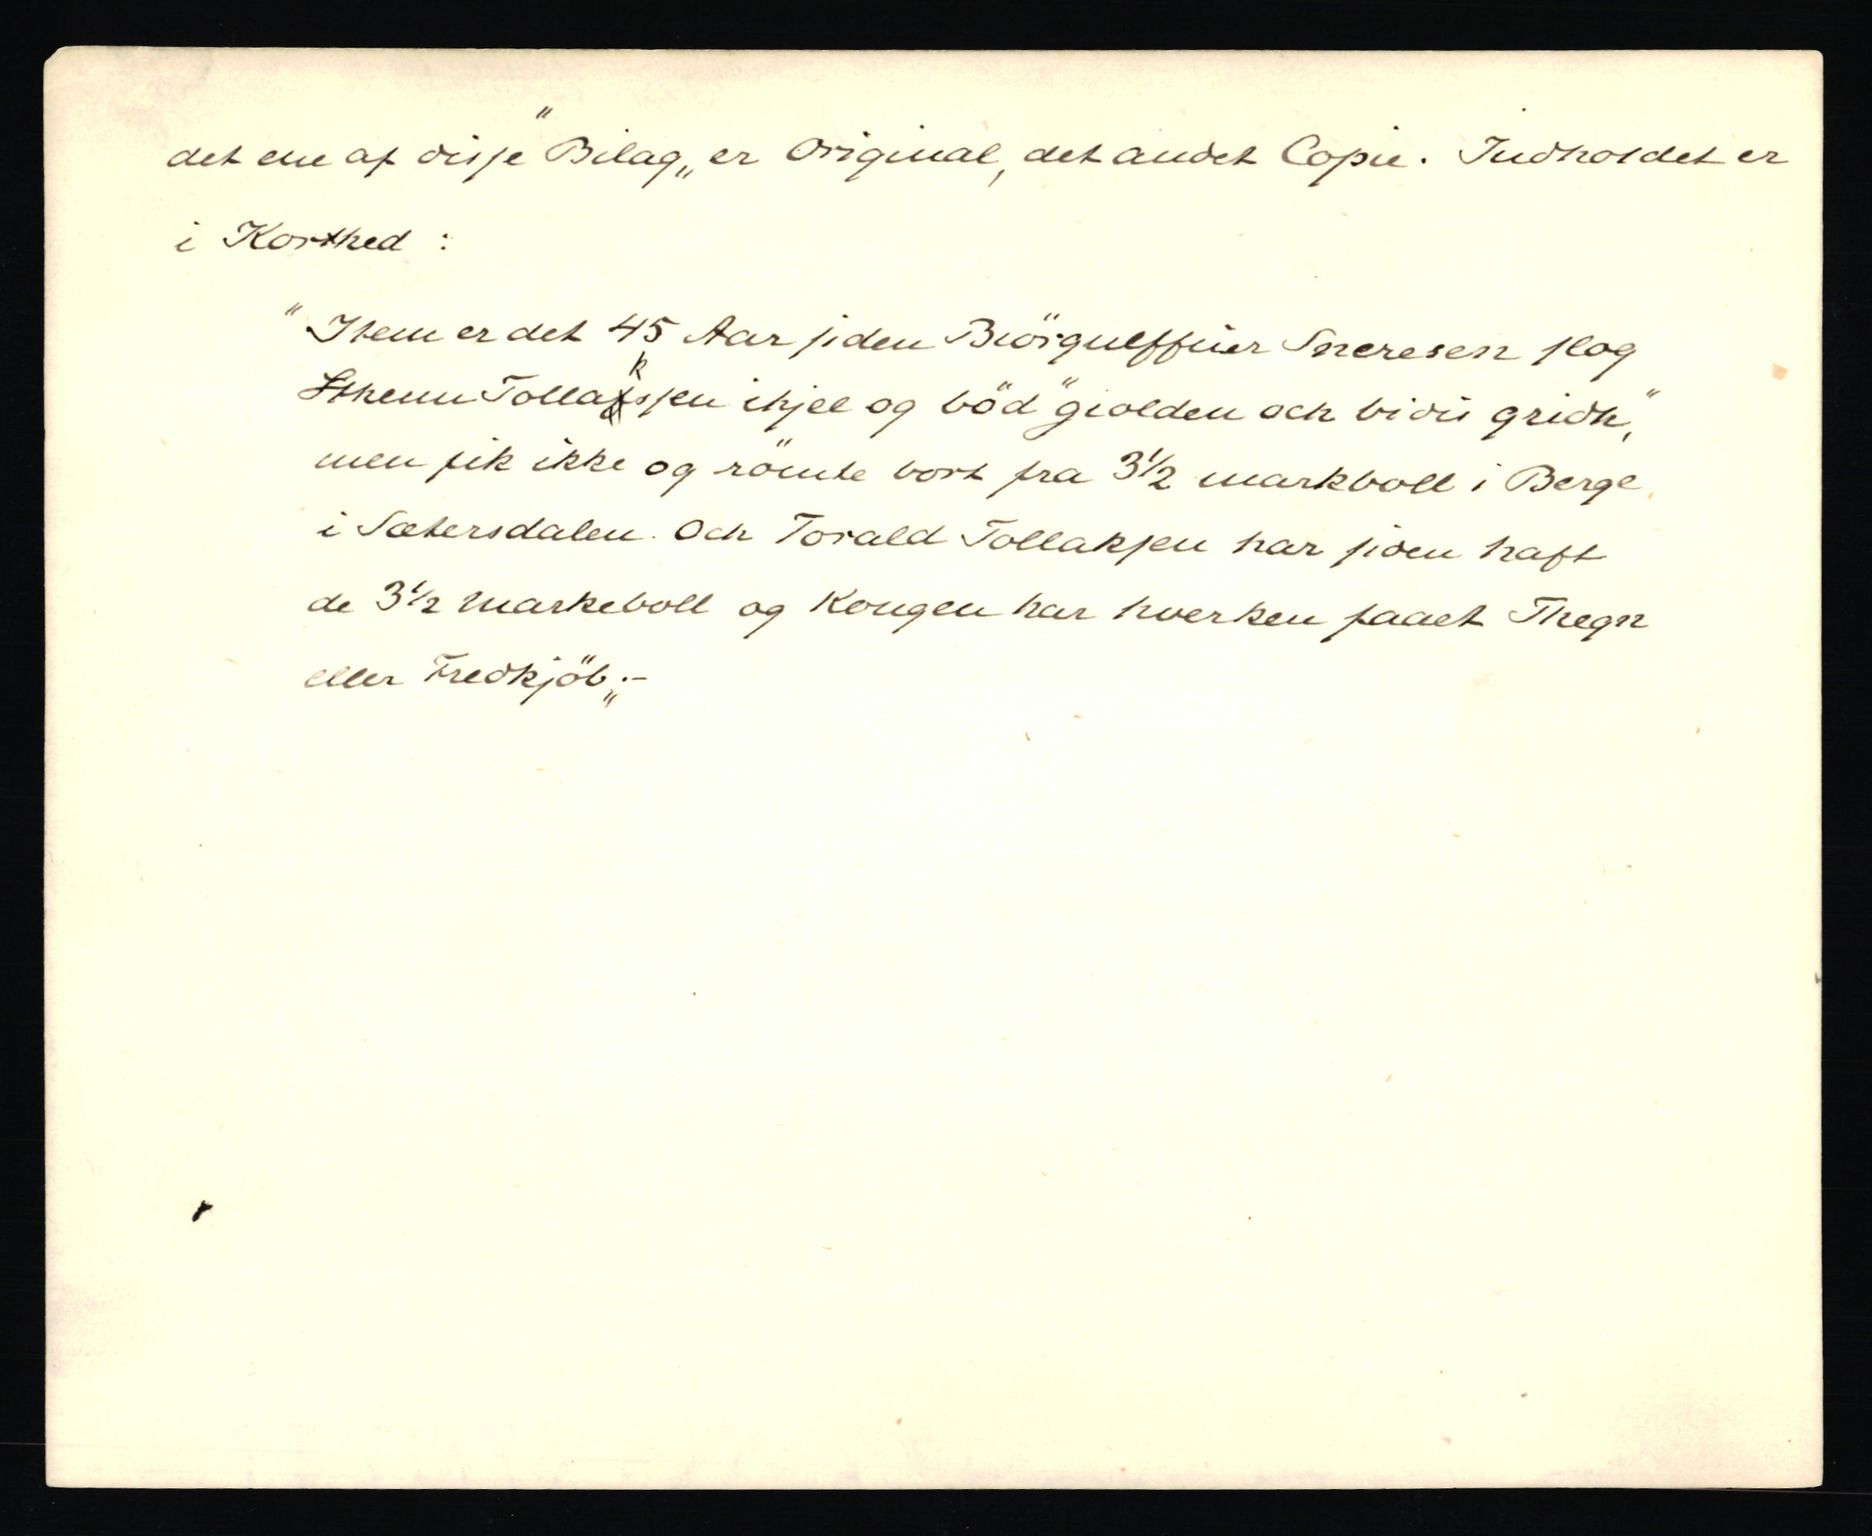 det ene af disse "Bilag„ er Original, det andet Copie. Indholdet er
i Korthed :
"Item er det 45 Aar siden Biörgulffuer Sneresen slog
Sthenn Tollakssen ihjel og böd "giolden och bidis gridh,"
men fik ikke og römte bort fra 3½ markboll i Berge
i Sætersdalen. Och Torald Tollaksen har siden haft
de 3½ markeboll og Kongen har hverken faaet Thegn
eller Fredkjöb„.-